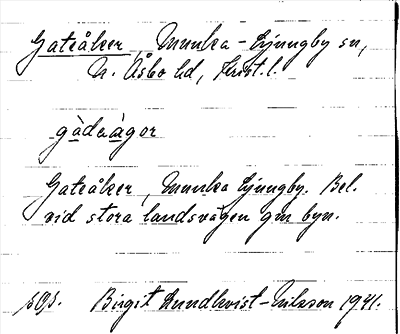 Gateåker, Munka-Ljungby sn,
N. Åsbo hd, Krist. l.
gàdaàgor
Gateåker, Munka Ljungby. Bel.
vid stora landsvägen gm byn.
Birgit Lundkvist-Nilsson 1941.